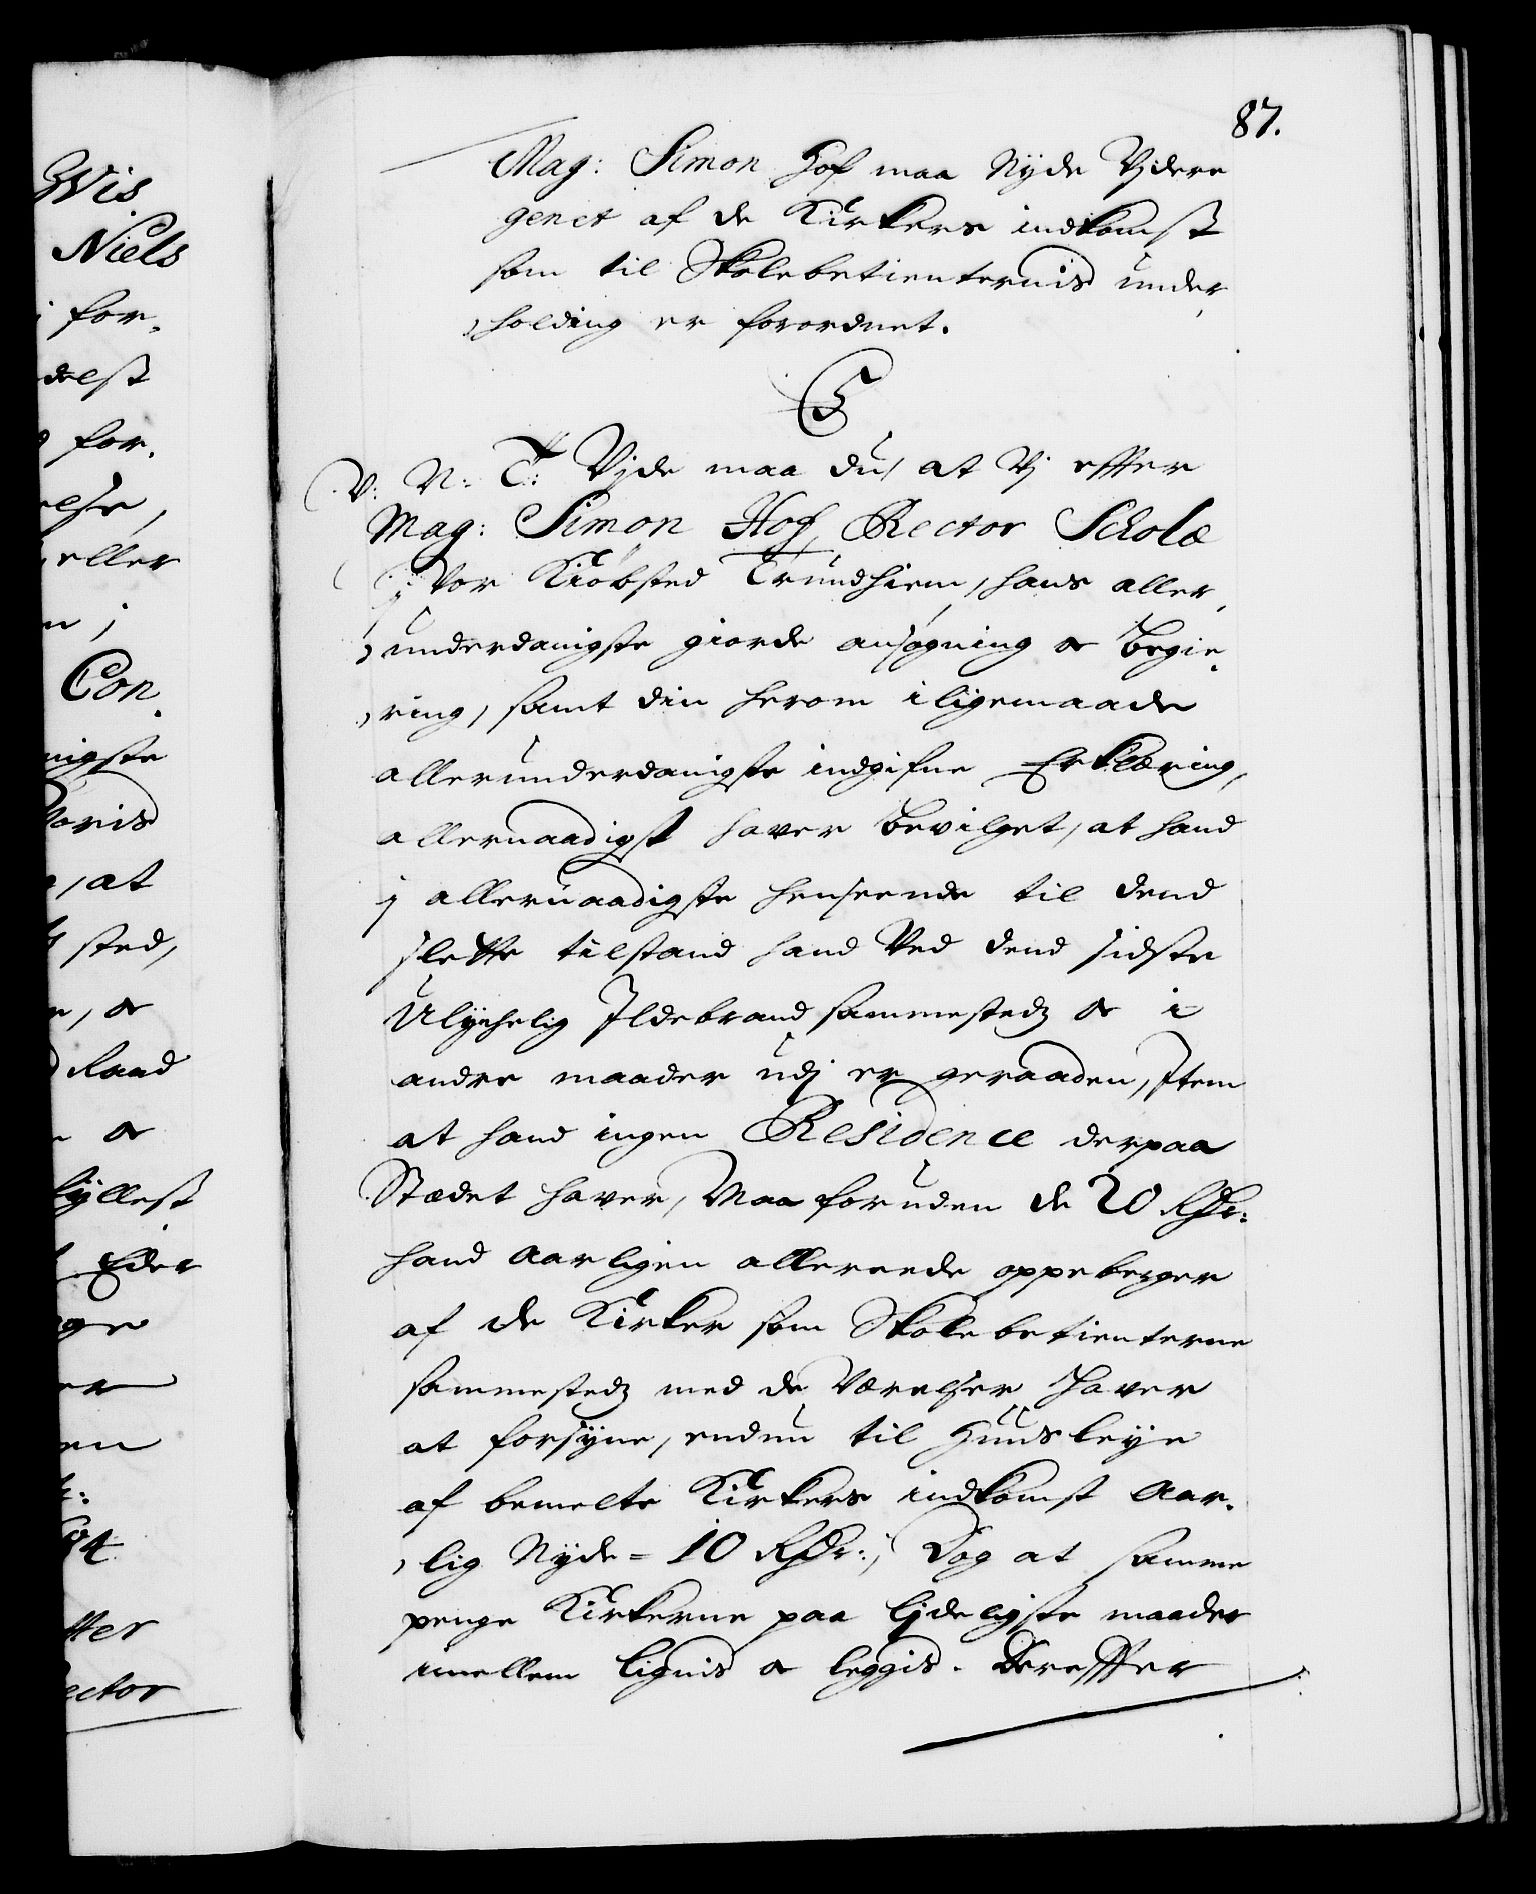 87.
Mag: Simon Hof maa Nyde Vjdere
genet af de Kirkers indkomst
som til Skolebetienternis under,
,holding er forordnet.
C5
V: N: T: Vjde maa du, at Vj effter
Mag: Simon Hof, Rector Scholæ
j Vor Kiøbsted Trundhiem, hans aller,
,underdanigste giorde ansøgning og Begie,
,ring, samt din herom iligemaade
allerunderdanigste indgifne Erklæring,
allernaadigst haver bevilget, at hand
j allernaadigste henseende til dend
slette tilstand hand Ved dend sidste
Ulychelig Ildebrand sammestedz og i
andre maader udj er geraaden, Item
at hand ingen Residence derpaa
Stædet haver, Maa foruden de 20 Rdr:
hand Aarligen allereede oppeberger
af de Kirker som Skolebetienterne
sammestedz med de Værelser haver
at forsyne, endnu til Huusleye
af bemelte Kirkers indkomst Aar,
,lig Nyde = 10 Rdr:, Dog at samme
penge Kirkerne paa ljdeligste maader
imellem lignis og leggis. Dereffter
Wis
Niels
for,
delst
for,
else,
eller
n j
Con,
nigste
, at
sted,
, og
Raad
og
fyllest
Eder
ge
er
en
ter
ector